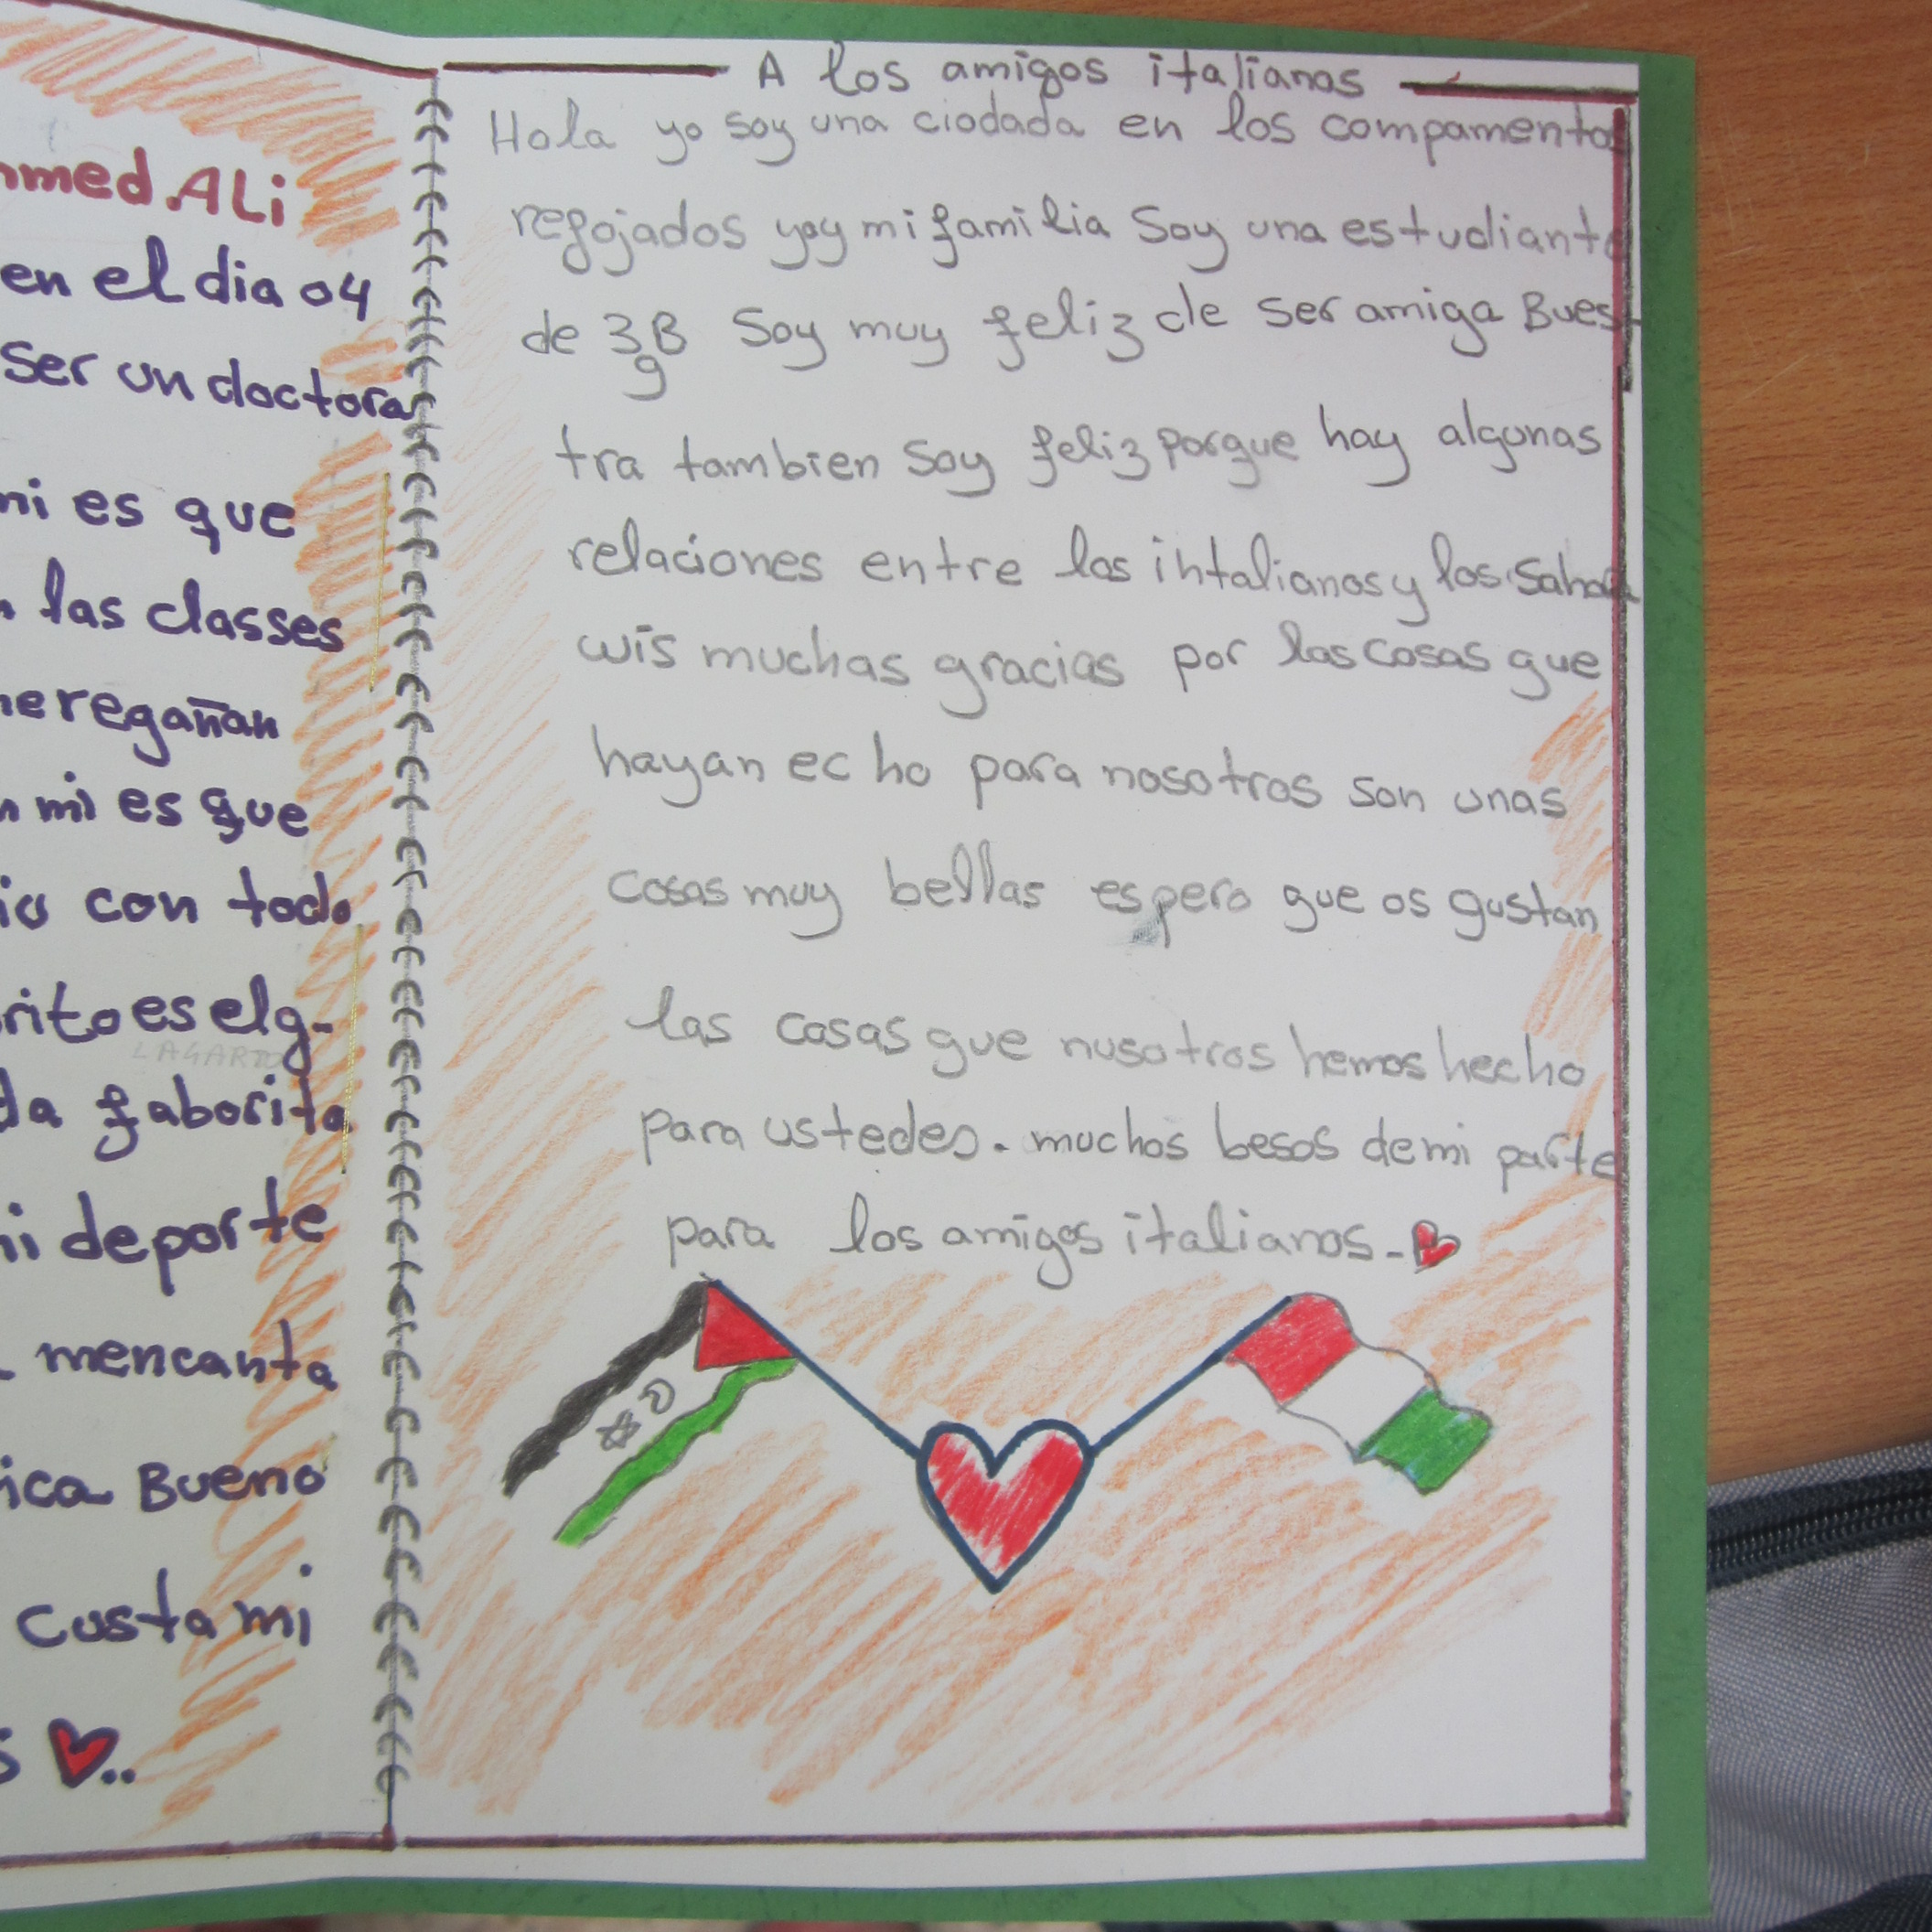 hmed ALi
en el dia 04
ser un doctora
mi es que
las classes
me regañan
mi es que
con todo
rito es elg-
LAGARTO
da faborita
mi deporte
mencanta
ica Bueno
custa mi
A los amigos italianos
Hola yo soy una ciodada en los compamentos
refojados yoy mi familia Soy una estudiante
de 3g B Soy muy feliz de ser amiga Bues-
tra tambien Soy feliz porque hay algunas
relaciones entre los ihtalianos y los Saha
wis muchas gracias por las cosas que
hayan echo para nosotros son unas
cosas muy bellas espero que os gustan
las cosas que nusotros hemos hecho
para ustedes. muchos besos de mi parte
para los amigos italianos-